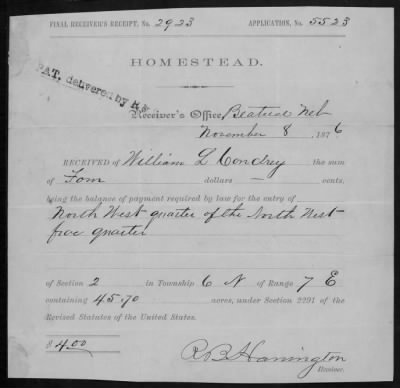 FINAL RECEIVER'S RECEIPT, No. 2923 APPLICATION, No. 5523
HOMESTEAD.
PAT. delivered by
Receiver's Office, Beatrice Neb
November 8, 1876
RECEIVED of William L Condrey the sum
of Four dollars — cents,
being the balance of payment required by law for the entry of
North West quarter of the North West
frac quarter
of Section 2 in Township 6 N of Range 7 E
containing 45.70 acres, under Section 2291 of the
Revised Statutes of the United States.
$ 4.00
R B Harrington
Receiver.